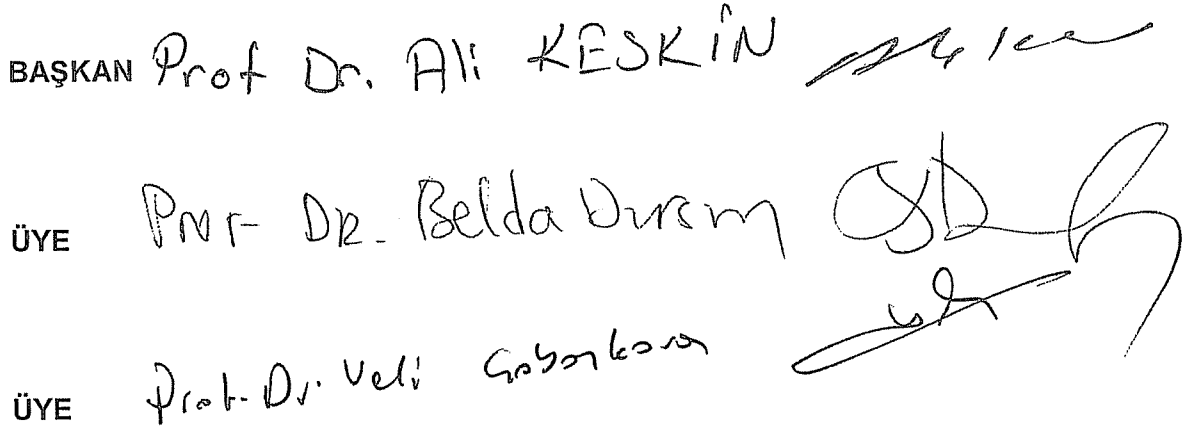 BAŞKAN Prof Dr. Ali KESKİN
ÜYE Prof DR. Belda Dursun
ÜYE Prof. Dr. Veli Çobankara